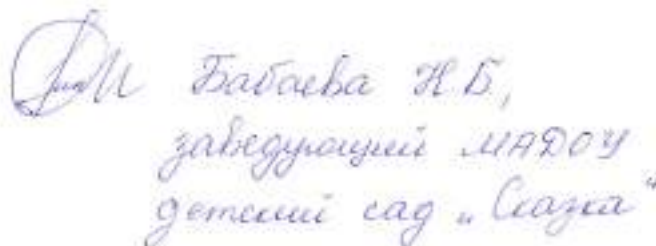 Бабаева Н.Б,
заведующий МАДОУ
детский сад „Сказка"